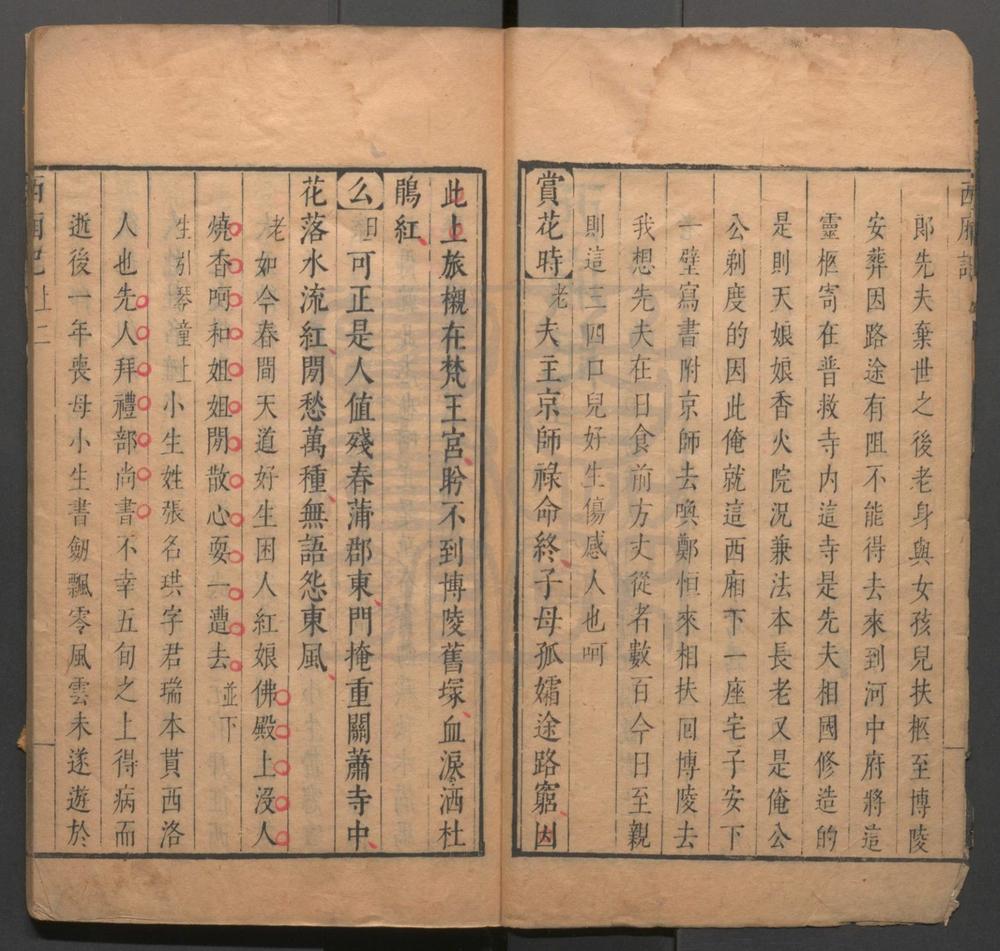 西廂記
郎先夫棄世之後老身與女孩兒扶柩至博陵
安葬因路途有阻不能得去來到河中府將這
靈柩寄在普救寺內這寺是先夫相國修造的
是則天娘娘香火院況兼法本長老又是俺公
公剃度的因此俺就這西廂下一座宅子安下
一壁寫書附京師去喚鄭恒來相扶回博陵去
我想先夫在日食前方丈從者數百今日至親
則這三四口兒好生傷感人也呵
賞花時 老 夫主京師祿命終子母孤孀途路窮因
此上旅櫬在梵王宮盼不到博陵舊塚血淚洒杜
鵑紅
么 旦 可正是人值殘春蒲郡東門掩重關蕭寺中
花落水流紅閒愁萬種無語怨東風
老 如今春間天道好生困人紅娘佛殿上沒人
燒香呵和姐姐閒散心耍一遭去 並下
生引琴童上 小生姓張名珙字君瑞本貫西洛
人也先人拜禮部尚書不幸五旬之上得病而
逝後一年喪母小生書劒飄零風雲未遂遊於
西廂記 上 二